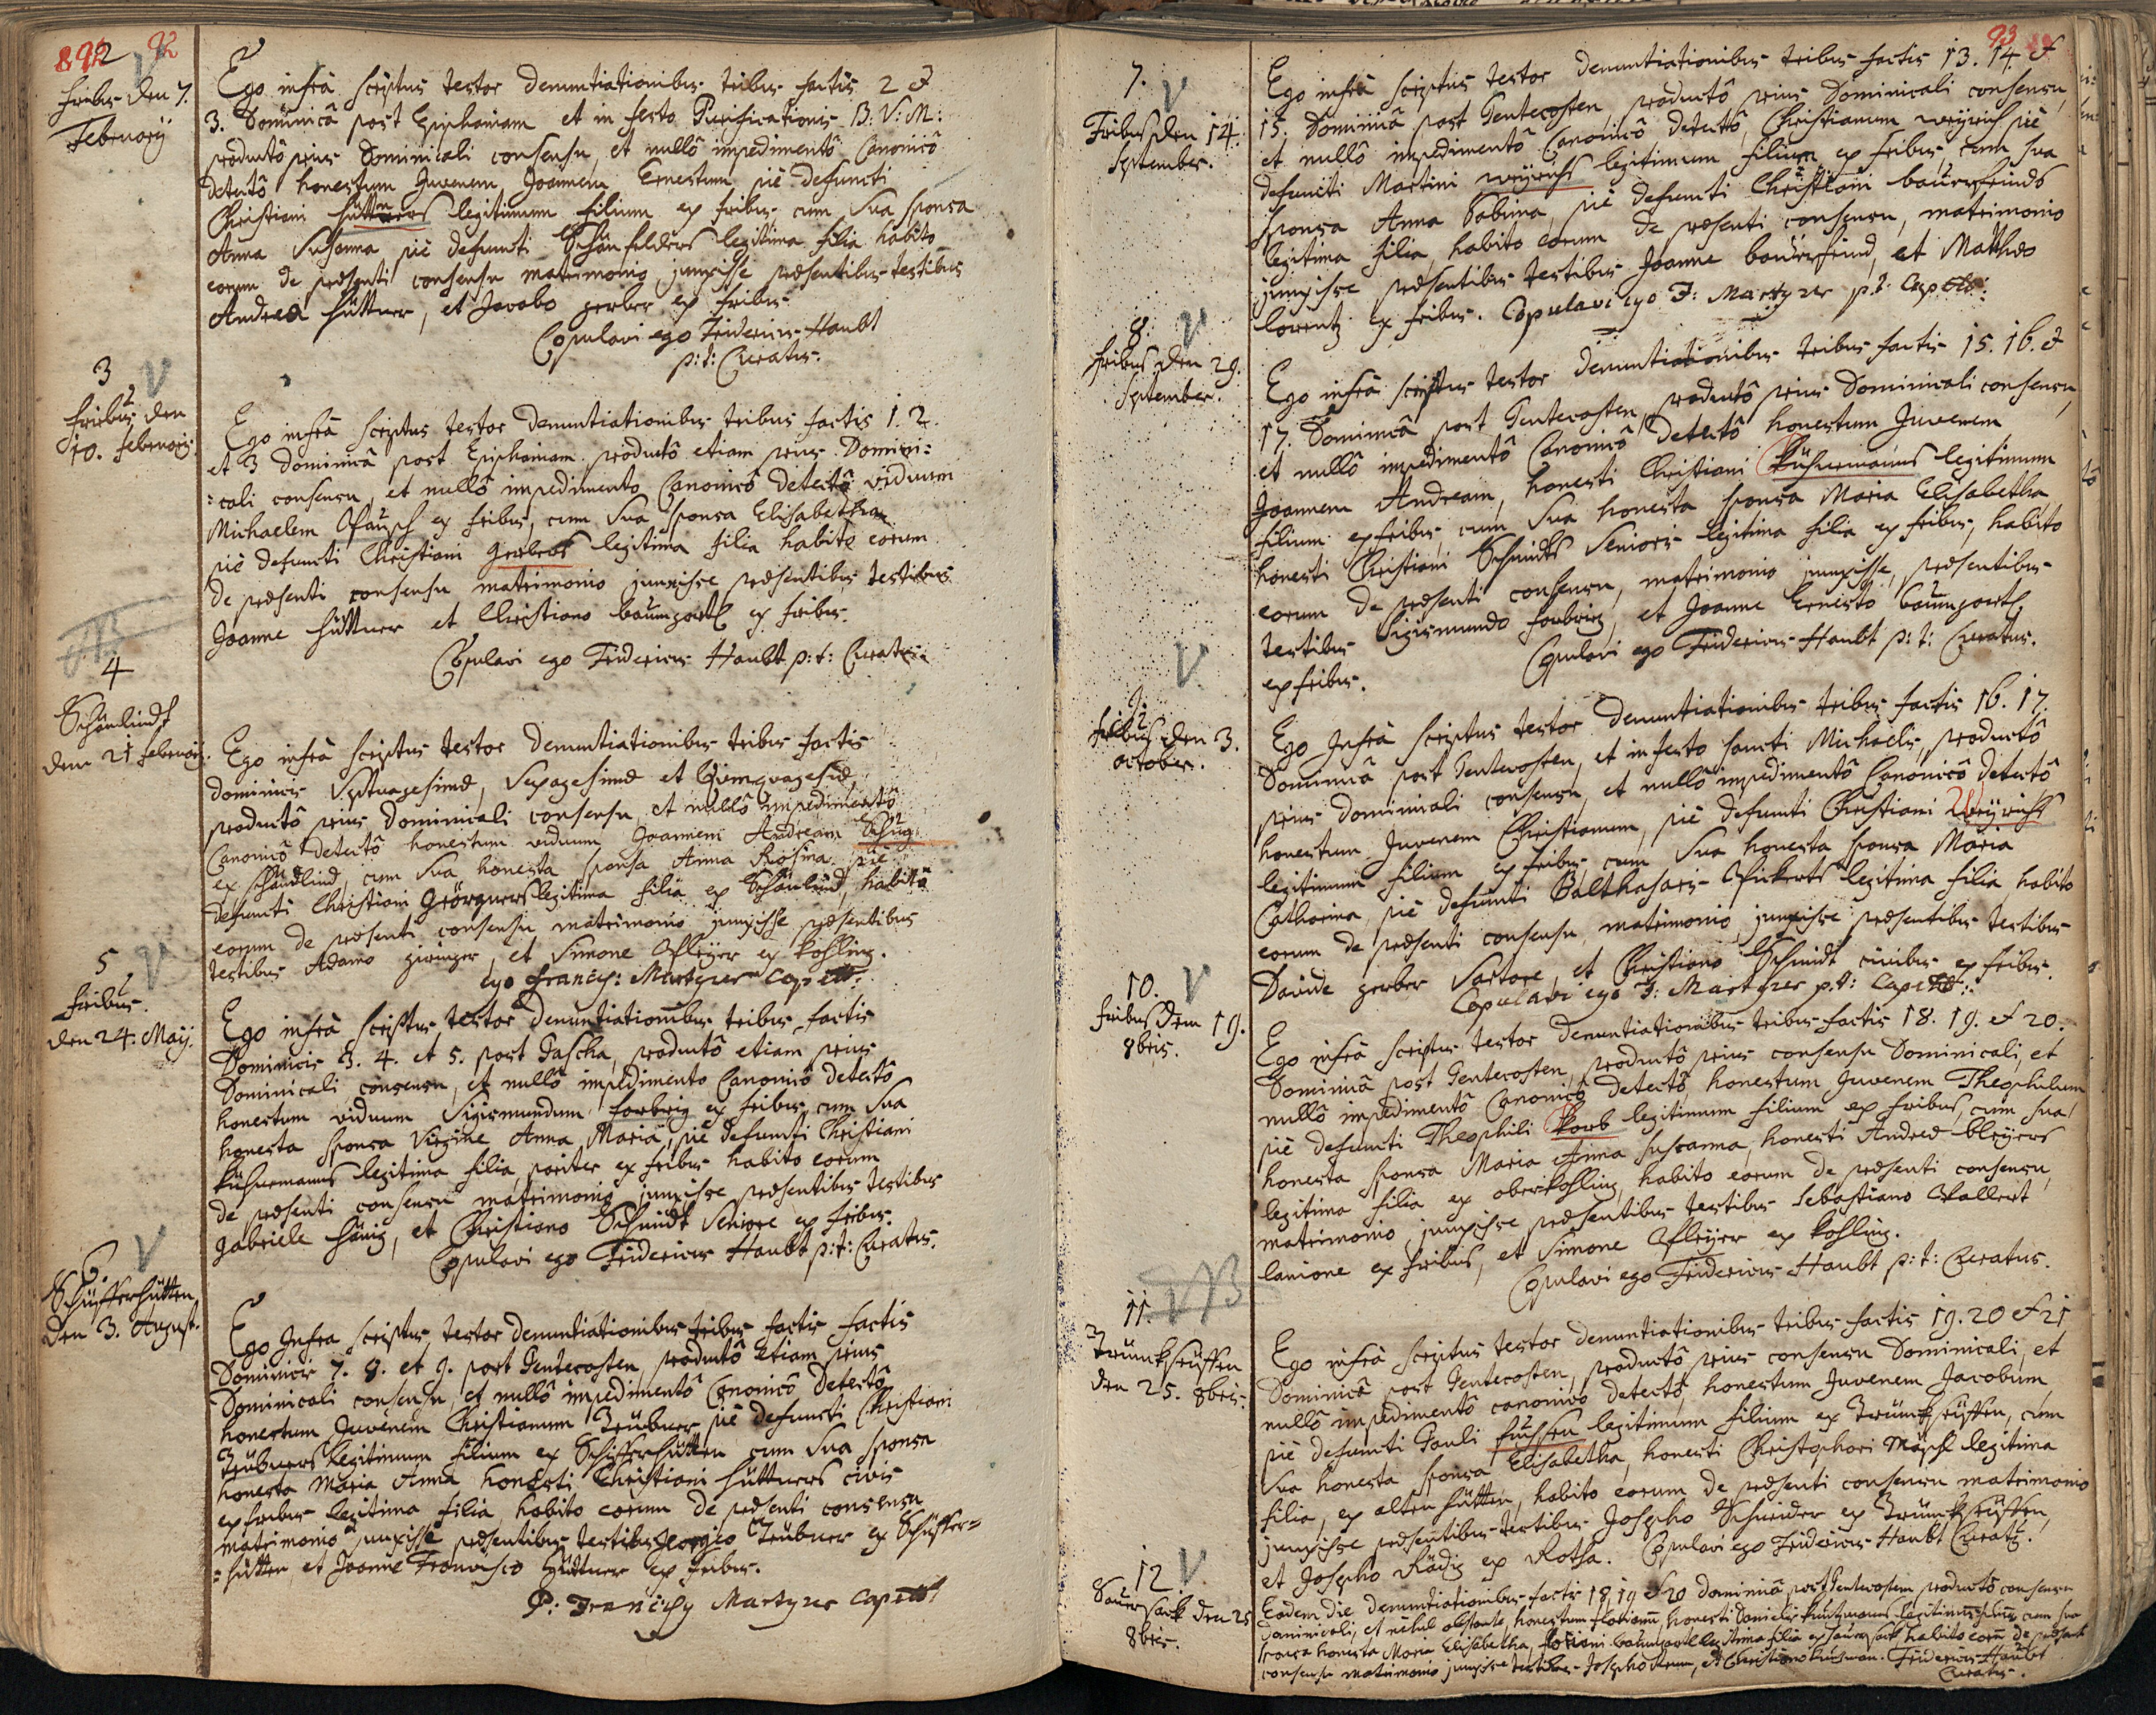 92
2
fribus den 7.
February
Ego infrà scriptus testor denuntiationibus tribus factis 2 &
3. Dominicâ post Epiphaniam et in festo Purificationis B: V: M:
productô prius Dominicali consensu, et nullô impedimentô Canonicô
detectô honestum Juvenem Joannem Ernestum, piè defuncti
Christiani hüttners legitimum filium ex fribus, cum sua sponsa
Anna Susanna piè defuncti Schönfelders legitima filia habito
eorum de præsenti consensu matrimonio junxisse præsentibus testibus
Andrea hüttner, et Jacobo gerber ex fribus.
Copulavi ego Fridericus Haubt
p: t: Curatus.
3
fribus den
10. february
Ego infrà scriptus testor denuntiationibus tribus factis 1. 2.
et 3 Dominicâ post Epiphaniam productô etiam prius Domini:
:cali consensu, et nullô impedimento Canonicô detectô viduum
Michaelem ex fribus, cum sua sponsa Elisabetha
piè defuncti Christiani gerbers legitima filia habito eorum
de præsenti consensu matrimonio junxisse præsentibus testibus
Joanne hüttner et Christiano baumgartl ex fribus.
Copulavi ego Fridericus Haubt p: t: Curatus.
4
Schönlindt
den 21 february.
Ego infrà scriptus testor denuntiationibus tribus factis
dominicis Septuagesimæ, Sexagesimæ et
productô prius Dominicali consensu, et nullô impedimentô
Canonicô detectô honestum viduum Joannem Andream
ex schöndlind, cum sua honesta sponsa Anna Rosina piè
defuncti Christiani legitima filia ex Schönlind, habitô
eorum de præsenti consensu matrimonio junxisse præsentibus
testibus Adamo, et Simone ex kohling.
ego francis: Martzner Capell:
5
fribus.
den 24. Maÿ.
Ego infrà scriptus testor denuntiationibus tribus factis
Dominicis 3. 4. et 5. post Pascha, productô etiam prius
Dominicali consensu, et nullô impedimento Canonicô detectô
honestum viduum Sigismundum forbrig ex fribus, cum sua
honesta sponsa Virgine Anna Maria, piè defuncti Christiani
legitima filia, pariter ex fribus habito eorum
de præsenti consensu matrimonio junxisse præsentibus testibus
Gabriele hönig, et Christiano Schmidt Seniore ex fribus.
Copulavi ego Fridericus Haubt p: t: Curatus.
6.
Schüfferhütten
den 3. August.
Ego Infra scriptus testor denuntiationibus tribus factis factis
Dominicis 7. 8. et 9. post Pentecosten, productô Etiam prius
Dominicali consensu, et nullô impedimentô Canonicô detectô
honestum Juvenem Christianum Trübner, piè defuncti Christiani
Trübners legitimum filium ex Schüfferhütten cum sua sponsa
honesta Maria Anna honesti Christiani hüttners civis
ex fribus legitima filia, habito eorum de præsenti consensu
matrimonio junxisse præsentibus testibus Georgio Trübner ex Schüffer=
=hütten, et Joanne Francisco Hüttner ex fribus.
P: Martzner Capell:
93
7.
Fribus den 14.
September.
Ego infrà scriptus testor denuntiationibus tribus factis 13. 14 &
15. Dominicâ post Pentecosten, productô prius Dominicali consensu,
et nullô impedimentô Canonicô detectô, Christianum weÿrich piè
defuncti Martini weÿrichs legitimum filium ex fribus, cum sua
sponsa Anna Sabina, piè defuncti Christiani baüernfeinds
legitima filia, habito eorum de præsenti consensu, matrimonio
junxisse præsentibus testibus Joanne baüernfeind, et Mathæo
lorentz ex fribus. Copulavi ego F: Martzner p: t: Capell:
8.
fribus den 29.
September.
Ego infrà scriptus testor Denuntiationibus tribus factis 15. 16. &
17. Dominicâ post Pentecosten, productô prius Dominicali consensu,
et nullô impedimentô Canonicô detectô honestum Juvenem
Joannem Andream, honesti Christiani legitimum
filium ex fribus, cum sua honesta sponsa Maria Elisabetha
honesti Christiani Schmidts Senioris legitima filia ex fribus, habito
eorum de præsenti consensu, matrimonio junxisse, præsentibus
testibus Sigismundo forbrig, et Joanne Ernesto baumgartl
ex fribus.
Copulavi ego Fridericus Haubt p: t: Curatus.
9.
fribus den 3.
october.
Ego Infrà scriptus testor Denuntiationibus tribus factis 16. 17.
Dominicâ post Pentecosten, et in festo Sancti Michaelis, productô
prius dominicali consensu, et nullô impedimentô Canonicô detectô
honestum Juvenem Christianum, piè defuncti Christiani Weÿrichs
legitimum filium ex fribus, cum sua honesta sponsa Maria
Catharina, piè defuncti Balthasaris legitima filia habito
eorum de præsenti consensu, matrimonio junxisse præsentibus testibus
Davide gerber Sartore, et Christiano Schmidt civibus ex fribus.
Copulavi ego F: Martzner p: t: Capell:
10.
fribus den 19.
8bris.
Ego infrà scriptus testor denuntiationibus tribus factis 18. 19. et 20.
Dominicâ post Pentecosten, productô prius consensu Dominicali, et
nullô impedimentô Canonicô detectô, honestum Juvenem Theophilum
piè defuncti Theophili korb legitimum filium ex fribus, cum sua
honesta sponsa Maria Anna Susanna, honesti Andreæ bleÿers
legitima filia ex oberkohling, habito eorum de præsenti consensu,
matrimonio junxisse præsentibus testibus Sebastiano
lanione ex fribus, et Simone ex kohling.
Copulavi ego Fridericus Haubt p: t: Curatus.
11.
Trünckseüffen
den 25. 8bris.
Ego infrà scriptus testor denuntiationibus tribus factis 19. 20 et 21
Dominicâ post Pentecosten, productô prius consensu Dominicali, et
nullô impedimentô canonicô detectô, honestum Juvenem Jacobum
piè defuncti Pauli legitimum filium ex Trünckseÿffen, cum
sua honesta sponsa Elisabetha, honesti Christophori legitima
filia, ex alten hütten, habito eorum de præsenti consensu matrimonio
junxisse præsentibus testibus Josepho Schneider ex Trünckseüffen,
et Josepho ex Rotha. Copulavi ego Fridericus Haubt Curatus.
12
Sauersack den 25
8bris.
Eadem die denuntiationibus factis 18 19 et 20 Dominicâ post Pentecosten productô consensu
dominicali, et nihil obstante, honestum florianum, honesti Danielis legitimum filium cum sua
sponsa honesta Maria Elisabetha, floriani baumgartl legitima filia ex sauersack habito eorum de præsenti
consensu matrimonio junxisse testibus Josepho, et Christiano. Fridericus Haubt
Curatus.